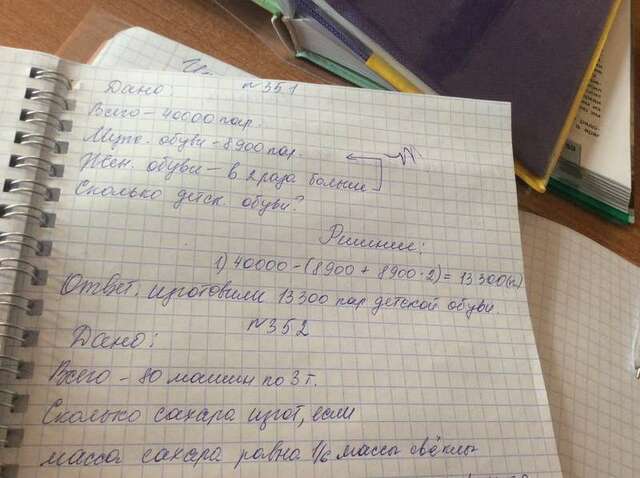 Дано: №351
Всего - 40000 пар.
Муж. обуви - 8900 пар.
Жен. обуви - в 2 раза больше
Сколько детск. обуви?
Решение:
1) 40000 - (8900 + 8900 · 2) = 13300 (п)
Ответ: изготовили 13300 пар детской обуви.
№352
Дано:
Всего - 80 машин по 3 т.
Сколько сахара изгот, если
масса сахара равна 1/6 массы свёклы